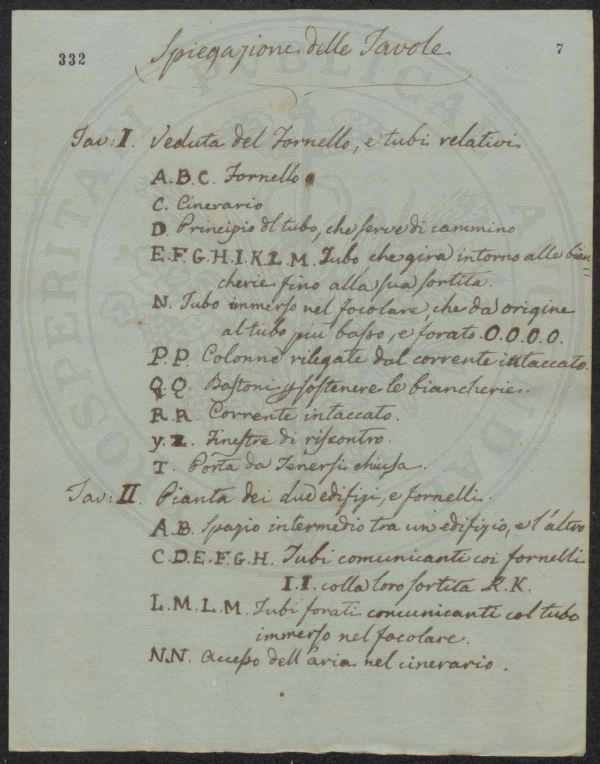 332
Spiegazione delle Tavole
7
Tav: I. Veduta del Fornello, e tubi relativi
A.B.C. Fornello
C. Cinerario
D. Principio dl tubo, che serve di cammino
E.F.G.H.I.K.L.M. Tubo che gira intorno alle bian=
cherie fino alla sua sortita.
N. Tubo immerso nel focolare, che da origine
al tubo più basso, e forato O.O.O.O.
P.P. Colonne rilegate dal corrente intaccato.
Q Q. Bastoni p sostenere le biancherie.
R.R. Corrente intaccato.
y.z. Finestre di riscontro.
T. Porta da Tenersi chiusa.
Tav: II. Pianta dei due edifizj, e fornelli.
A.B. Spazio intermedio tra un edifizio, e l'altro
C.D.E.F.G.H. Tubi comunicanti coi fornelli
I.I. colla loro sortita K.K.
L.M.L.M. Tubi forati comunicanti col tubo
immerso nel focolare.
N.N. Accesso dell'aria nel cinerario.
PROSPERITATI PUBLICAE AUGENDAE